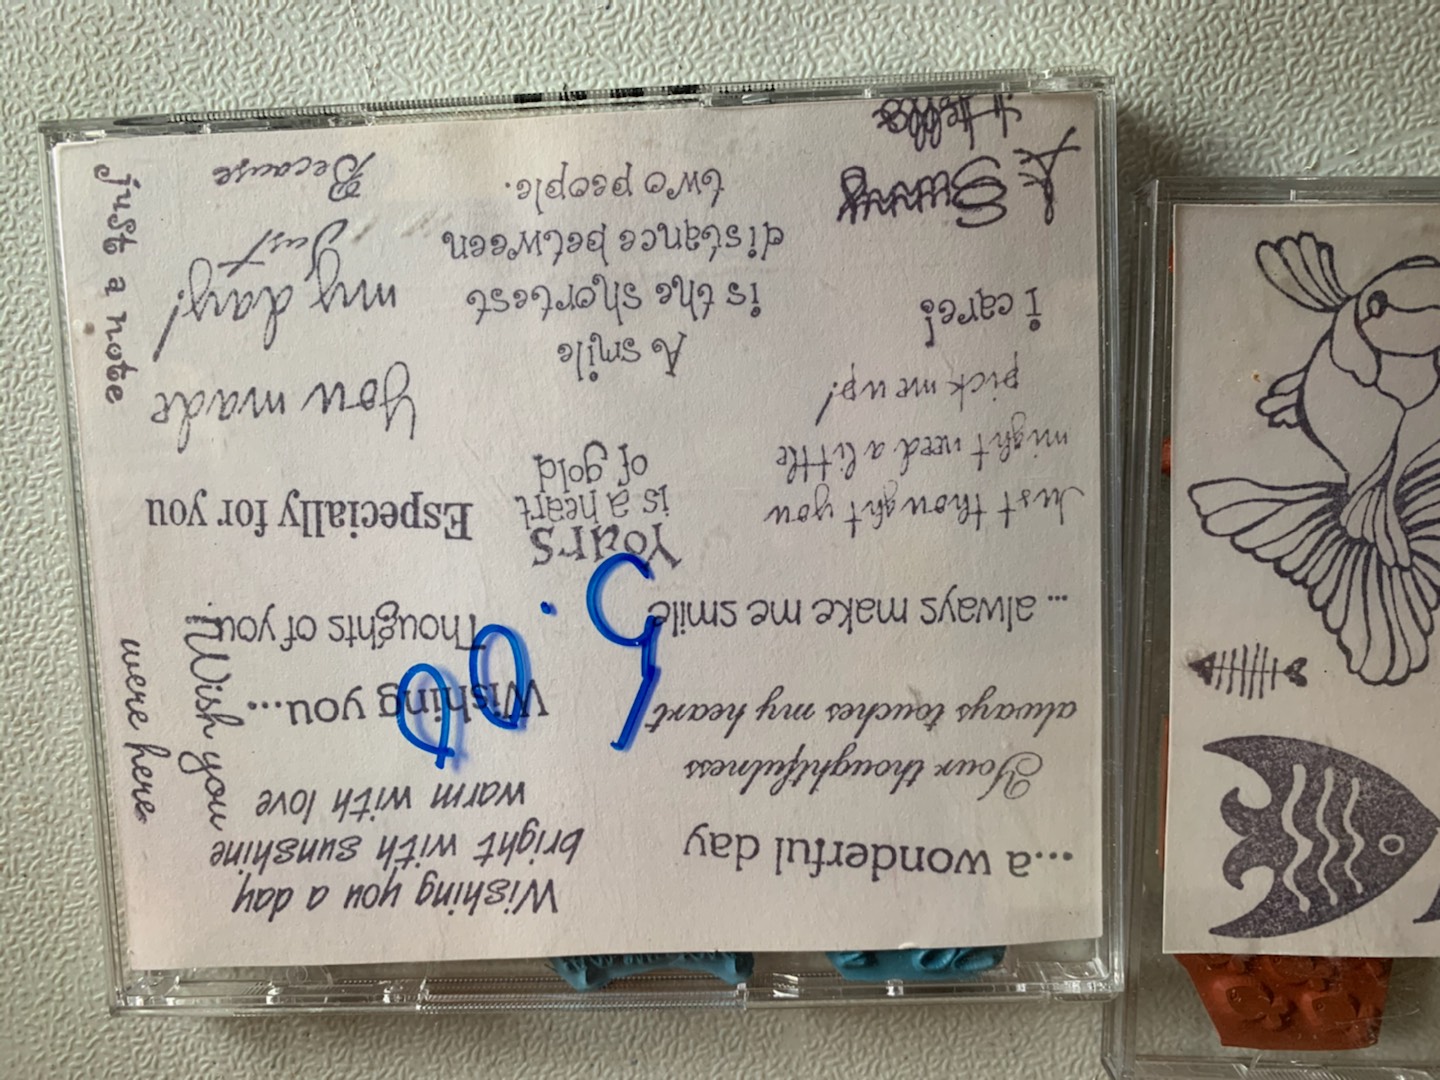 Wishing you a day
bright with sunshine
warm with love
Wishing you...
Thoughts of you
Especially for you
You made
my day!
Just
Because
5.00
Yours
is a heart
of gold
A smile
is the shortest
distance between
two people.
...a wonderful day
Your thoughtfulness
always touches my heart
... always make me smile
Just thought you
might need a little
pick me up!
i care!
A
Sunny
Hello
just a note
Wish you
were here